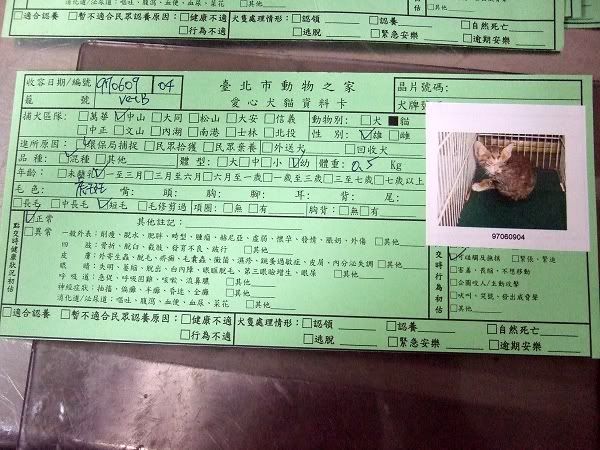 適合認養 □暫不適合民眾認養原因：□健康不適 犬隻處理情形：□認領 □認養 □自然死亡
□行為不適 □逃脫 □緊急安樂 □逾期安樂
臺北市動物之家
愛心犬貓資料卡
收容日期/編號 970609 04 晶片號碼：
籠 號
捕犬區隊：□萬華 ☑中山 □大同 □松山 □大安 □信義 動物別：□犬 ■貓
□中正 □文山 □內湖 □南港 □士林 □北投 性 別：☑雄 □雌
進所原因：☑環保局捕捉 □民眾拾獲 □民眾棄養 □外送犬 □回收犬
品 種：☑混種 □其他 體 型：□大 □中 □小 ☑幼 體重：0.5 Kg
年齡：□未離乳 ☑一至三月 □三月至六月 □六月至一歲 □一歲至三歲 □三歲至七歲 □七歲以上
毛 色： 嘴： 頭： 胸： 腳： 耳： 背： 尾：
□長毛 □中長毛 ☑短毛 □毛修剪過 項圈：□無 □有 胸背：□無 □有
☑正常 其他註記：
□異常 一般外表：削瘦、脫水、肥胖、畸型、腫瘤、赫尼亞、虛弱、懷孕、發情、脹奶、外傷 □其他
四 肢：骨折、脫臼、截肢、發育不良、跛行 □其他
皮 膚：外寄生蟲、脫毛、疥癬、毛囊蟲、黴菌、濕疹、跳蚤過敏症、皮屑、內分泌失調 □其他
眼 睛：失明、萎縮、脫出、白內障、眼瞼脫毛、第三眼瞼增生、眼屎 □其他
呼 吸 道：急促、呼吸困難、咳嗽、流鼻膿 □其他
神經症狀：抽搐、偏癱、半癱、昏迷、全癱 □其他
消化道/泌尿道：嘔吐、腹瀉、血便、血尿、菜花 □其他
點交時健康狀況初估
97060904
□緊張、緊迫
□害羞、畏縮、不想移動
□公開咬人/主動攻擊
□吠叫、哭號、發出威脅聲
□其他
□適合認養 □暫不適合民眾認養原因：□健康不適 犬隻處理情形：□認領 □認養 □自然死亡
□行為不適 □逃脫 □緊急安樂 □逾期安樂